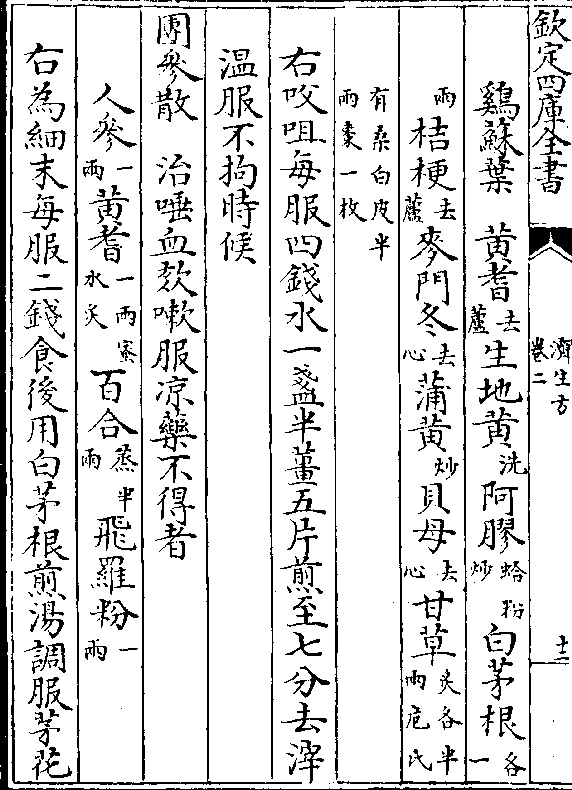 欽定四庫全書
濟生方
卷二
十二
鷄蘇葉 黃耆去蘆生地黃洗阿膠蛤粉炒白茅根各一
兩桔梗去蘆麥門冬去心蒲黃炒貝母去心甘草炙各半兩危氏
有桑白皮半兩棗一枚
右㕮咀每服四錢水一盞半薑五片煎至七分去滓
温服不拘時候
團參散 治唾血欬嗽服凉藥不得者
人參一兩黃耆一兩蜜水炙百合蒸半兩飛羅粉一兩
右為細末每服二錢食後用白茅根煎湯調服茅花